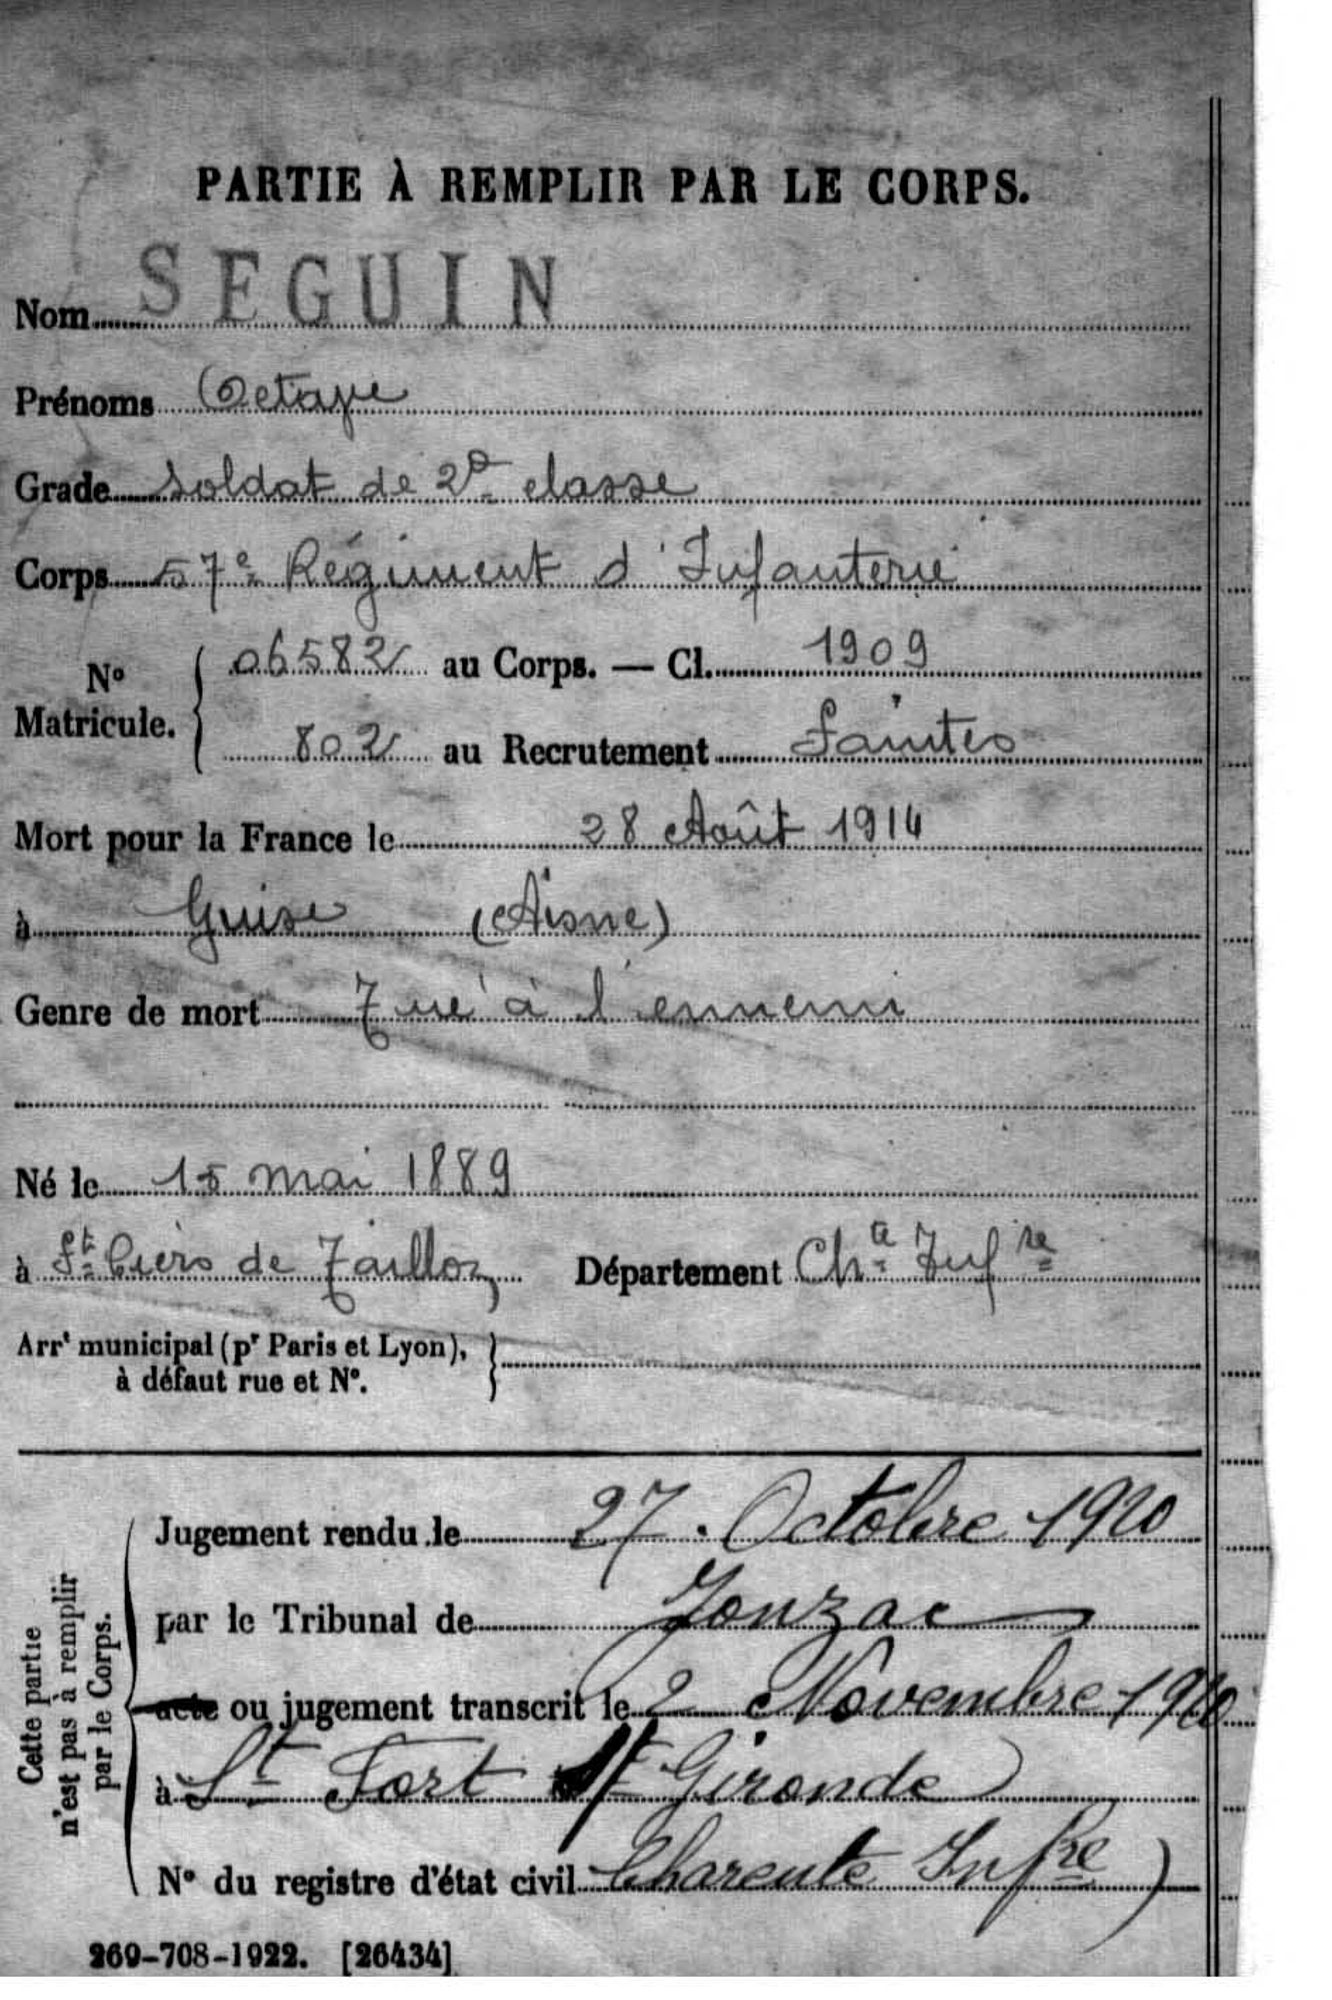 PARTIE À REMPLIR PAR LE CORPS.
Nom SEGUIN
Prénoms Octave
Grade Soldat de 2e classe
Corps 57e Régiment d'Infanterie
No Matricule. { 06582 au Corps. — Cl. 1909
802 au Recrutement Saintes
Mort pour la France le 28 Août 1914
à Guise (Aisne)
Genre de mort Tué à l'ennemi
Né le 15 mai 1889
à St Ciers de Tailloz Département Chte Infre
Arrt municipal (pr Paris et Lyon),
à défaut rue et No.
Cette partie
n'est pas à remplir
par le Corps.
Jugement rendu le 27. Octobre 1920
par le Tribunal de Jonzac
acte ou jugement transcrit le 2 Novembre 1920
à St Fort s/ Gironde
No du registre d'état civil Charente Infre)
269-708-1922. [26434]